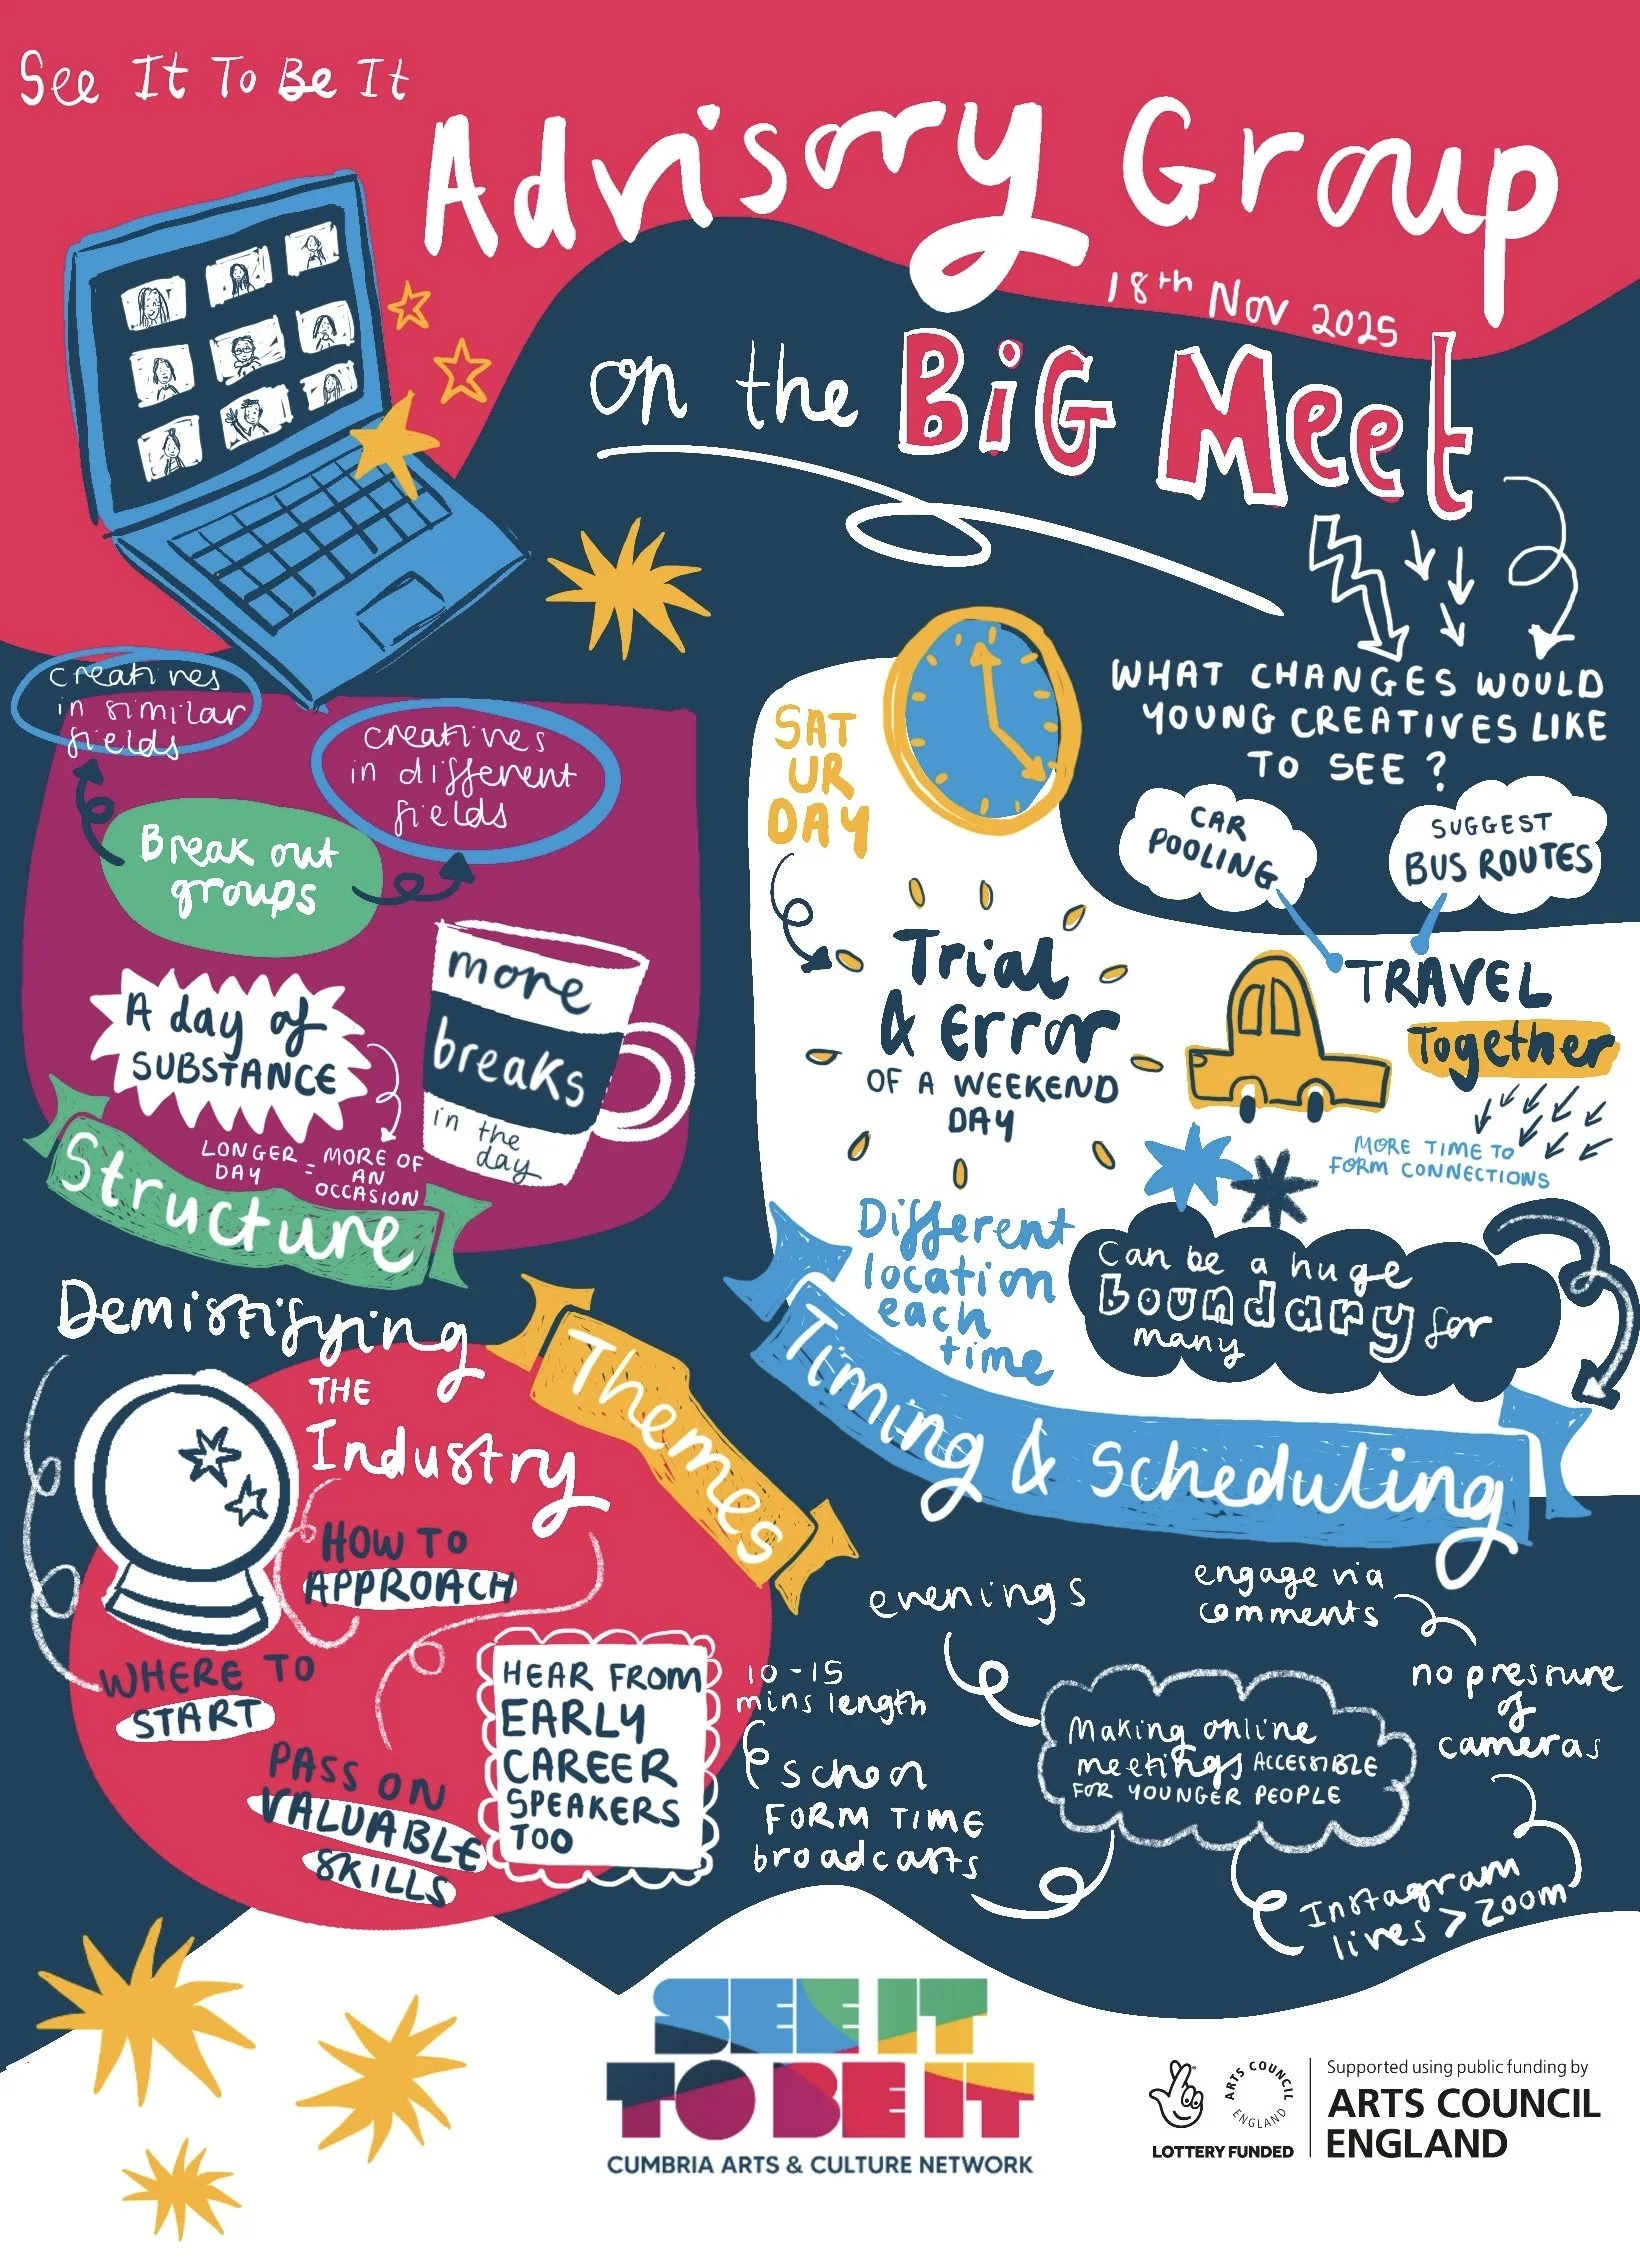 See It To Be It
Advisory Group
18th Nov 2025
on the BiG Meet
WHAT CHANGES WOULD
YOUNG CREATIVES LIKE
TO SEE?
CAR
POOLING
SUGGEST
BUS ROUTES
TRAVEL
Together
MORE TIME TO
FORM CONNECTIONS
Can be a huge
boundary for
many
SAT
UR
DAY
Trial
& Error
OF A WEEKEND
DAY
Different
location
each
time
Timing & Scheduling
creatives
in similar
fields
creatives
in different
fields
Break out
groups
more
breaks
in the
day
A day of
SUBSTANCE
LONGER
DAY
=
MORE OF
AN
OCCASION
Structure
Themes
Demistifying
THE
Industry
HOW TO
APPROACH
WHERE TO
START
PASS ON
VALUABLE
SKILLS
HEAR FROM
EARLY
CAREER
SPEAKERS
TOO
evenings
engage via
comments
no pressure
of
cameras
10-15
mins length
school
FORM TIME
broadcasts
Making online
meetings ACCESSIBLE
FOR YOUNGER PEOPLE
Instagram
lives > Zoom
SEE IT
TO BE IT
CUMBRIA ARTS & CULTURE NETWORK
LOTTERY FUNDED
ARTS COUNCIL
ENGLAND
Supported using public funding by
ARTS COUNCIL
ENGLAND